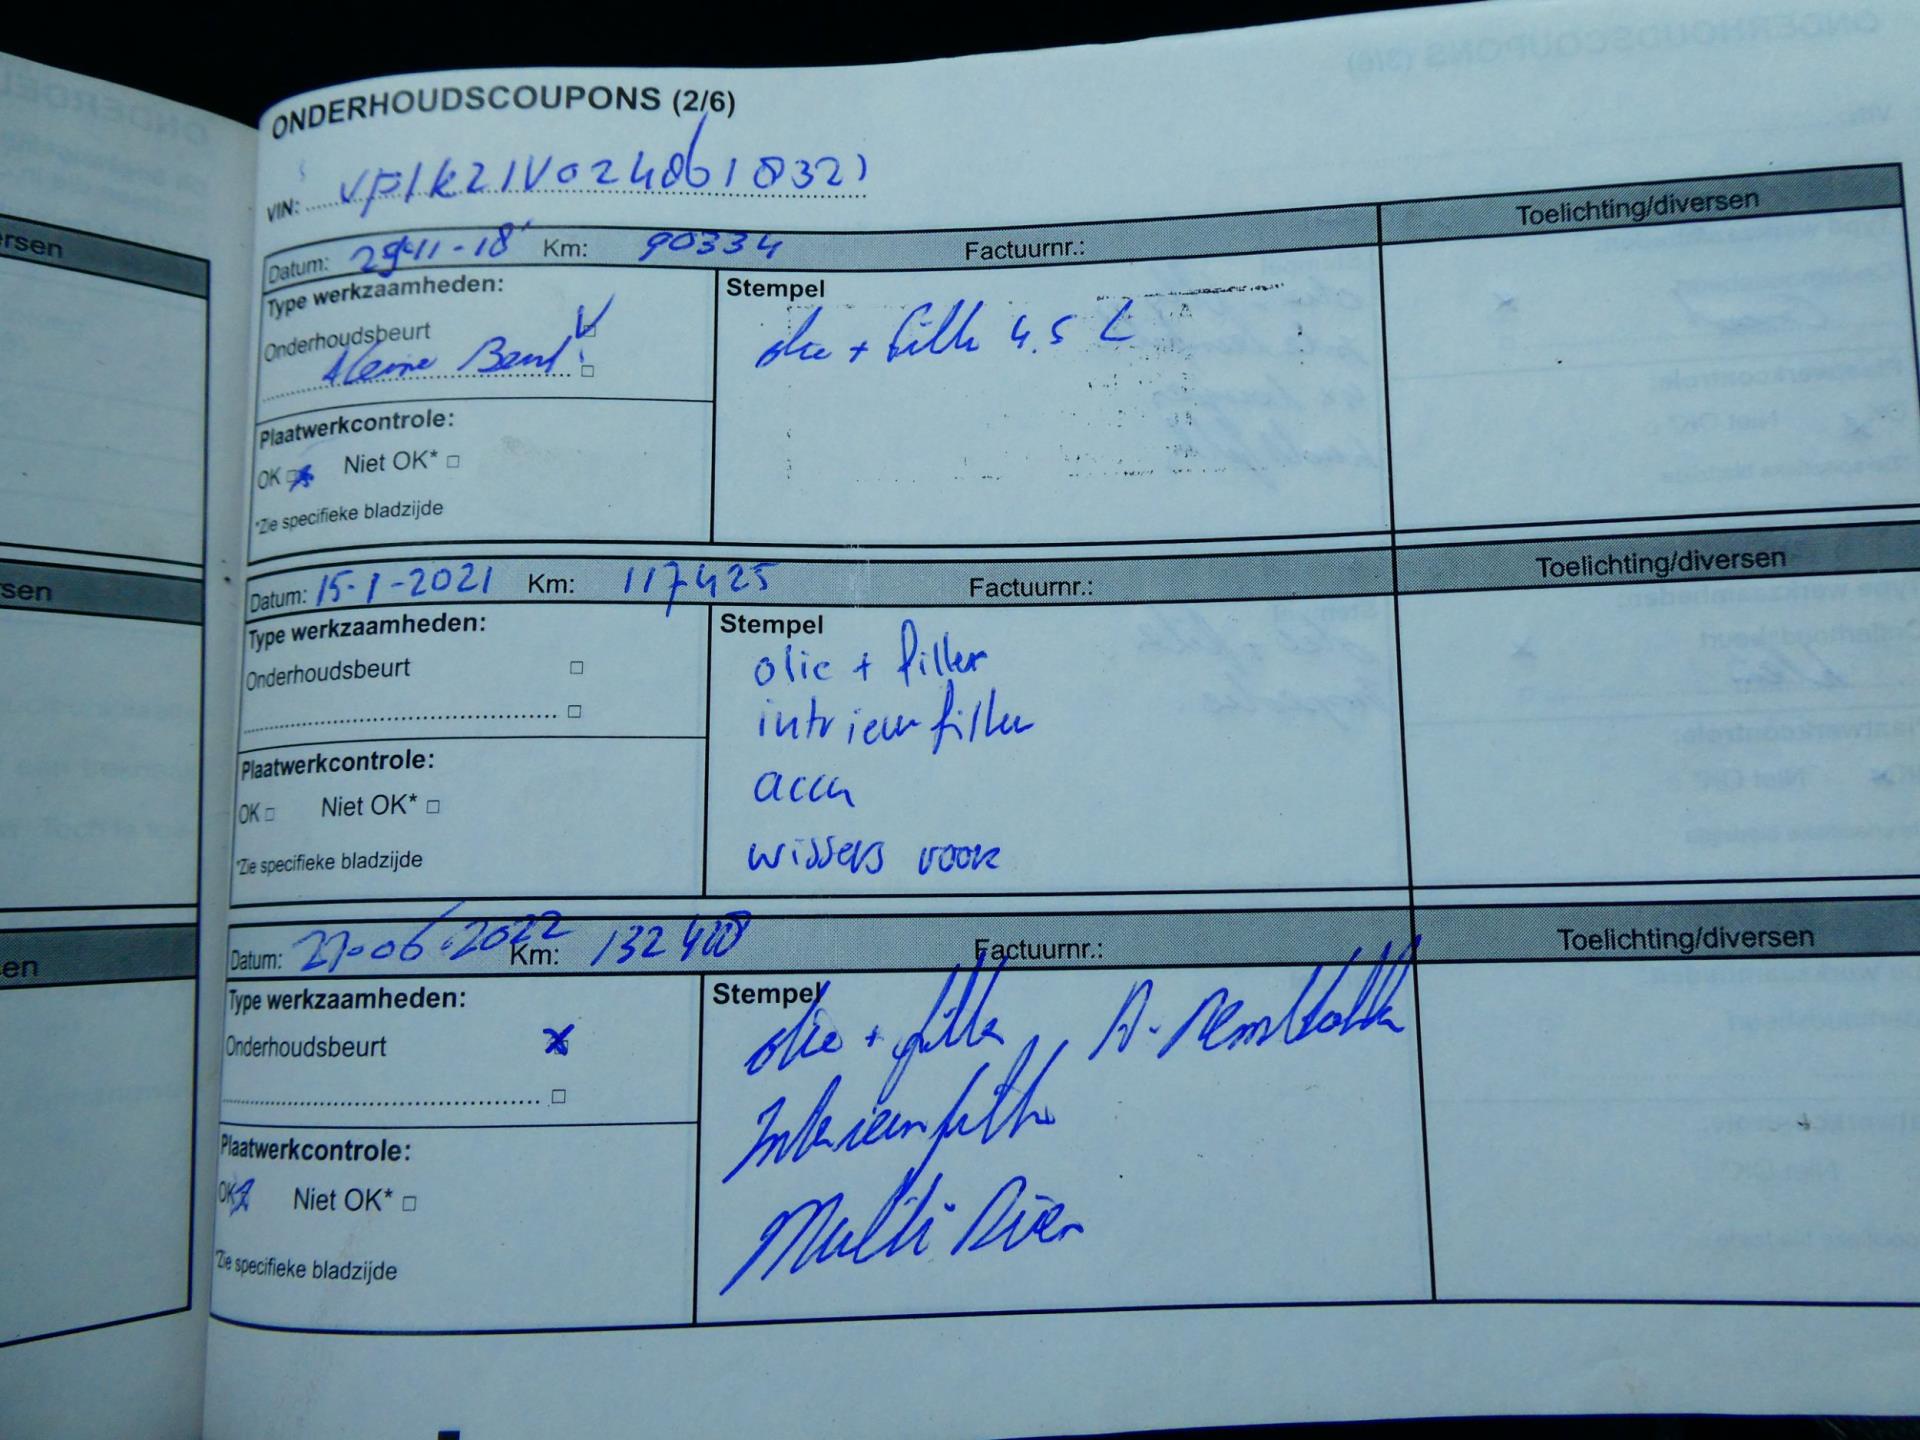 ONDERHOUDSCOUPONS (2/6)
VIN:
Datum: 29-11-18 Km: 90334 Factuurnr.: Toelichting/diversen
Type werkzaamheden:
Onderhoudsbeurt
kleine Beurt
Stempel
olie + filter 4.5 L
Plaatwerkcontrole:
OK Niet OK*
*Zie specifieke bladzijde
Datum: 15-1-2021 Km: 117425 Factuurnr.: Toelichting/diversen
Type werkzaamheden:
Onderhoudsbeurt
Stempel
olie + filter
intrieur filter
accu
wissers voor
Plaatwerkcontrole:
OK Niet OK*
*Zie specifieke bladzijde
Datum: 27-06-2022 Km: Factuurnr.: Toelichting/diversen
Type werkzaamheden:
Onderhoudsbeurt
Stempel
olie + filter A-Remblokken
Interieurfilter
Multi Riem
Plaatwerkcontrole:
OK Niet OK*
*Zie specifieke bladzijde
ersen
rsen
en